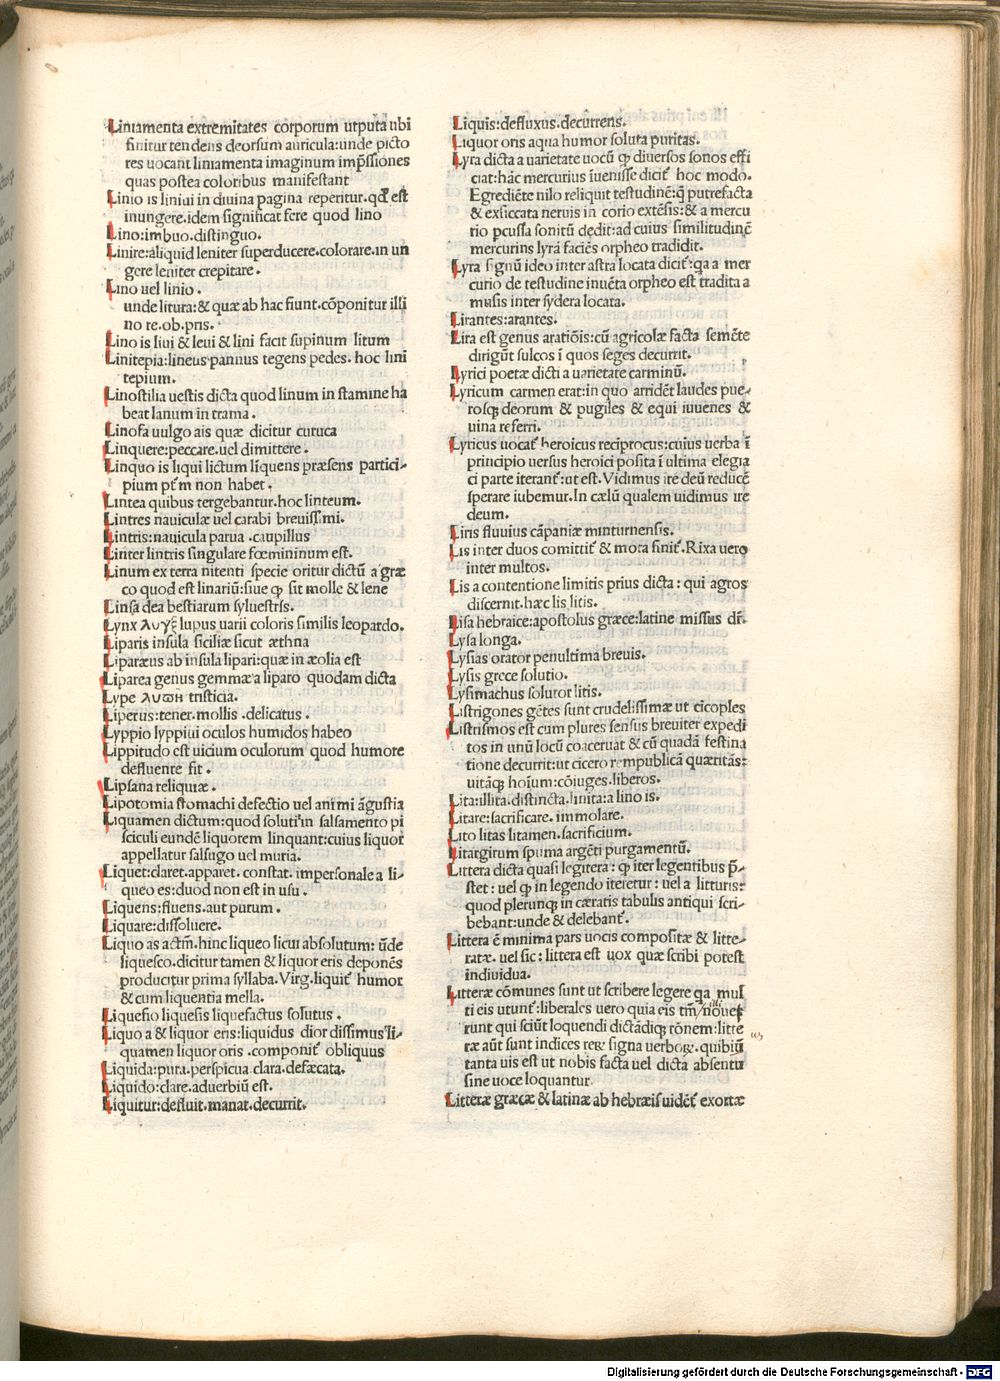 Liniamenta extremitates corporum utputa ubi
finitur tendens deorsum auricula:unde picto
res uocant liniamenta imaginum imp̄ssiones
quas postea coloribus manifestant
Linio is liniui in diuina pagina reperitur.qđ est
inungere.idem significat fere quod lino
Lino:imbuo.distinguo.
Linire:aliquid leniter superducere.colorare.in un
gere leniter crepitare.
Lino uel linio.
unde litura:& quæ ab hac fiunt.cōponitur illi
no re.ob.pns.
Lino is liui & leui & lini facit supinum litum
Linitepia:lineus pannus tegens pedes.hoc lini
tepium.
Linostilia uestis dicta quod linum in stamine ha
beat lanum in trama.
Linosa uulgo ais quæ dicitur curuca
Linquere:peccare.uel dimittere.
Linquo is liqui lictum liquens præsens partici-
pium pt̄m non habet.
Lintea quibus tergebantur.hoc linteum.
Lintres nauiculæ uel carabi breuissimi.
Lintris:nauicula parua.caupillus
Linter lintris singulare fœmininum est.
Linum ex terra nitenti specie oritur dictū a græ
co quod est linariū:siue ꝙ sit molle & lene
Linsa dea bestiarum syluestris.
Lynx λυγξ lupus uarii coloris similis leopardo.
Liparis insula siciliæ sicut æthna
Liparæus ab insula lipari:quæ in æolia est
Liparea genus gemmæ a liparo quodam dicta
Lype λυπη tristicia.
Liperus:tener.mollis.delicatus.
Lyppio lyppiui oculos humidos habeo
Lippitudo est uicium oculorum quod humore
defluente fit.
Lipsana reliquiæ.
Lipotomia stomachi defectio uel animi āgustia
Liquamen dictum:quod soluti in salsamento pi
sciculi eundē liquorem linquant:cuius liquor
appellatur salsugo uel muria.
Liquet:claret.apparet.constat.impersonale a li-
queo es:duod non est in usu.
Liquens:fluens.aut purum.
Liquare:dissoluere.
Liquo as actm̄.hinc liqueo licui absolutum:ūde
liquesco.dicitur tamen & liquor eris deponēs
producitur prima syllaba.Virg.liquit̄ humor
& cum liquentia mella.
Liquefio liquefis liquefactus solutus.
Liquo a & liquor eris:liquidus dior dissimus li-
quamen liquor oris.componit̄ obliquus
Liquida:pura.perspicua clara.defæcata.
Liquido:clare.aduerbiū est.
Liquitur:defluit.manat.decurrit.
Liquis:defluxus.decurrens.
Liquor oris aqua humor soluta puritas.
Lyra dicta a uarietate uocū ꝙ diuersos sonos effi
ciat:hāc mercurius īuenisse dicit̄ hoc modo.
Egrediēte nilo reliquit testudinē:q̄ putrefacta
& exsiccata neruis in corio extēsis:& a mercu
rio pcussa sonitū dedit:ad cuius similitudinē
mercurius lyrā faciēs orpheo tradidit.
Lyra signū ideo inter astra locata dicit̄:qa a mer
curio de testudine inuēta orpheo est tradita a
musis inter sydera locata.
Lirantes:arantes.
Lira est genus aratiōis:cū agricolæ facta semēte
dirigūt sulcos ī quos seges decurrit.
Lyrici poetæ dicti a uarietate carminū.
Lyricum carmen erat:in quo arridēt laudes pue-
rosqꝫ deorum & pugiles & equi iuuenes &
uina referri.
Lyricus uocat̄ heroicus reciprocus:cuius uerba ī
principio uersus heroici posita ī ultima elegia
ci parte iterant̄:ut est.Vidimus ire deū reducē
sperare iubemur.In cælū qualem uidimus ire
deum.
Liris fluuius cāpaniæ minturnensis.
Lis inter duos comittit̄ & mota finit̄.Rixa uero
inter multos.
Lis a contentione limitis prius dicta:qui agros
discernit.hæc lis litis.
Lisa hebraice:apostolus græce:latine missus dr̄.
Lysa longa.
Lysias orator penultima breuis.
Lysis grece solutio.
Lysimachus solutor litis.
Listrigones gētes sunt crudelissimæ ut cicoples
Listrismos est cum plures sensus breuiter expedi
tos in unū locū coaceruat & cū quadā festina
tione decurrit:ut cicero rempublicā quæritās:
uitāqꝫ hoīum:cōiuges.liberos.
Lita:illita.distincta.linita:a lino is.
Litare:sacrificare.immolare.
Lito litas litamen.sacrificium.
Litatgirum spuma argēti purgamentū.
Littera dicta quasi legitera:ꝙ iter legentibus p̄-
stet:uel ꝙ in legendo iteretur:uel a litturis:
quod plerunqꝫ in cæratis tabulis antiqui scri-
bebant:unde & delebant̄.
Littera ē minima pars uocis compositæ & litte-
ratæ.uel sic:littera est uox quæ scribi potest
indiuidua.
Litteræ cōmunes sunt ut scribere legere qa mul
ti eis utunt̄:liberales uero quia eis tm̄/nouef
runt qui sciūt loquendi dictādiqꝫ rōnem:litte
ræ aūt sunt indices reꝝ signa uerboꝝ.quibiū
tanta uis est ut nobis facta uel dicta absentū
sine uoce loquantur.
Litteræ græcæ & latinæ ab hebræis uidēt̄ exortæ
Digitalisierung gefördert durch die Deutsche Forschungsgemeinschaft - DFG